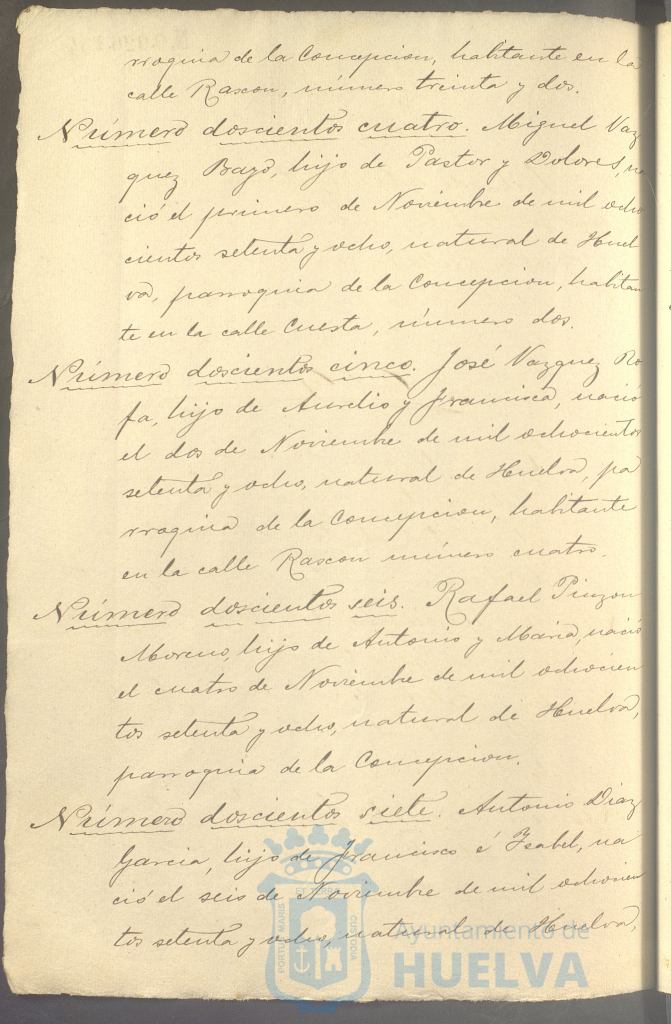 rroquia de la Concepcion, habitante en la
calle Rascon, número treinta y dos.
Número doscientos cuatro. Miguel Vaz
quez Bayo, hijo de Pastor y Dolores, na
ció el primero de Noviembre de mil ocho
cientos setenta y ocho, natural de Huel
va, parroquia de la Concepcion, habitan
te en la calle Cuesta, número dos.
Número doscientos cinco. José Vazquez Ro
fa, hijo de Aurelio y Francisca, nació
el dos de Noviembre de mil ochocientos
setenta y ocho, natural de Huelva, pa
rroquia de la Concepcion, habitante
en la calle Rascon número cuatro.
Número doscientos seis. Rafael Pinzon
Moreno, hijo de Antonio y Maria, nació
el cuatro de Noviembre de mil ochocien
tos setenta y ocho, natural de Huelva,
parroquia de la Concepcion.
Número doscientos siete. Antonio Diaz
Garcia, hijo de Francisco é Ysabel, na
ció el seis de Noviembre de mil ochocien
tos setenta y ocho, natural de Huelva,
PORTUS MARIS ET TERRE CUSTODIA
Ayuntamiento de
HUELVA